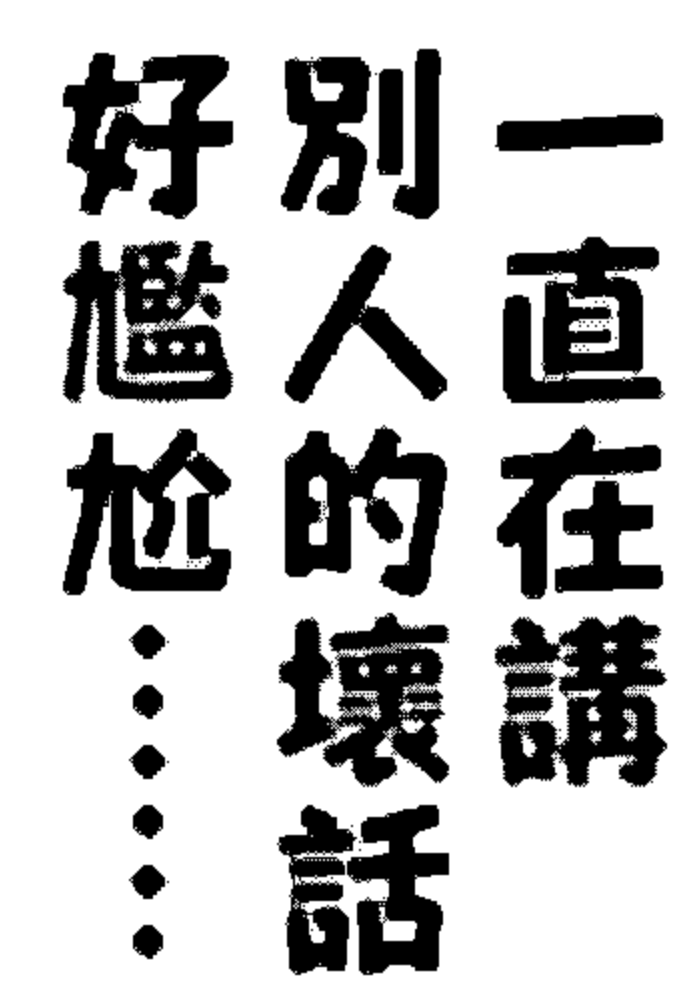 一直在講
別人的壞話
好尷尬……